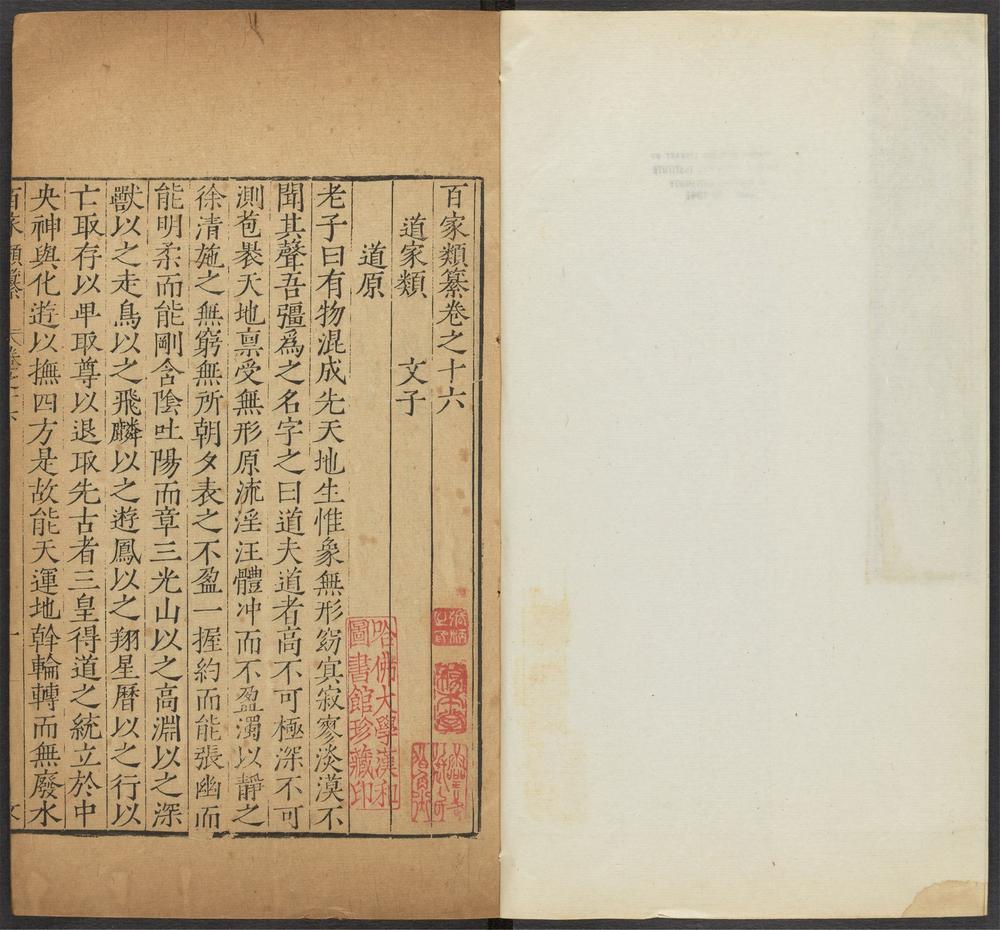 百家類纂卷之十六
道家類 文子
道原
老子曰有物混成先天地生惟象無形窈冥寂寥淡漠不
聞其聲吾彊爲之名字之曰道夫道者高不可極深不可
測苞裹天地禀受無形原流淫汪體冲而不盈濁以靜之
徐清施之無窮無所朝夕表之不盈一握約而能張幽而
能明柔而能剛含陰吐陽而章三光山以之高淵以之深
獸以之走鳥以之飛麟以之遊鳳以之翔星曆以之行以
亡取存以卑取尊以退取先古者三皇得道之統立於中
央神與化遊以撫四方是故能天運地幹輪轉而無廢水
百家類纂 卷之十六 一
哈佛大學漢和
圖書館珍藏印